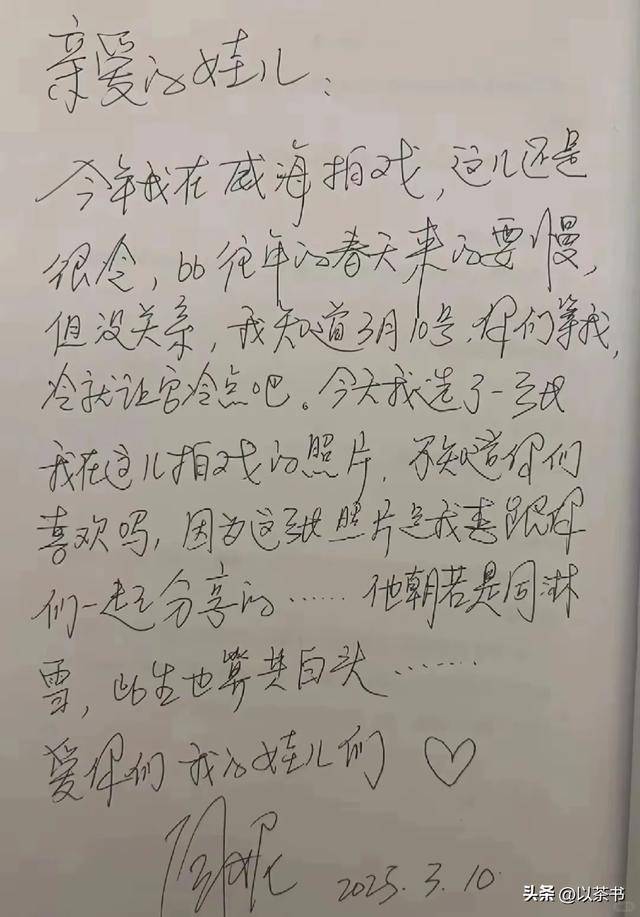 亲爱的娃儿：
今年我在威海拍戏，这儿还是
很冷，bb往年的春天来的要慢，
但没关系，我知道3月10号，你们等我，
冷就让它冷点吧。今天我选了一张
我在这儿拍戏的照片，不知道你们
喜欢吗，因为这张照片是我要跟你
们一起分享的……他朝若是同淋
雪，此生也算共白头……
爱你们 我的娃儿们 ♡
2025.3.10
头条 @以茶书